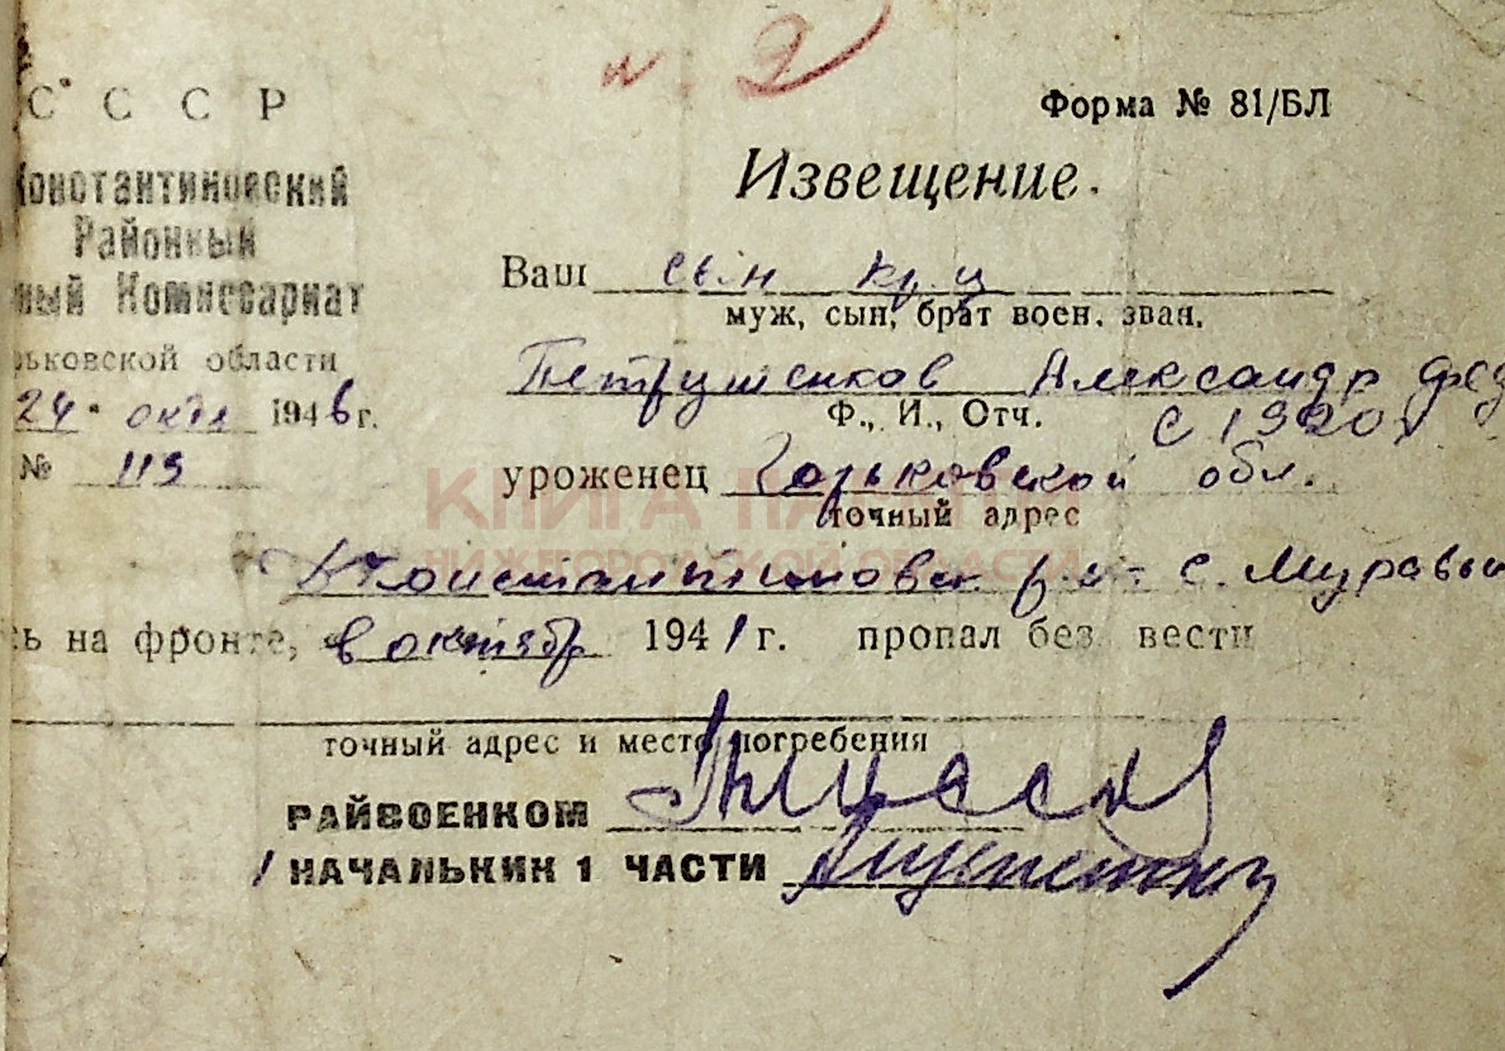 и 2
СССР
Форма № 81/БЛ
Константиновский
Районный
ный Комиссариат
рьковской области
24 окт 1946 г.
№ 119
Извещение.
Ваш сын кр-ц
муж, сын, брат воен. зван.
Петрушенков Александр Фед
Ф., И., Отч. с 1920 г
уроженец Горьковской обл.
точный адрес
КНИГА ПАМЯТИ
НИЖЕГОРОДСКОЙ ОБЛАСТИ
Константиновск. р-н с. Муравьи
сь на фронте, в октябр 1941 г. пропал без вести
точный адрес и место погребения
РАЙВОЕНКОМ
/ НАЧАЛЬНИК 1 ЧАСТИ